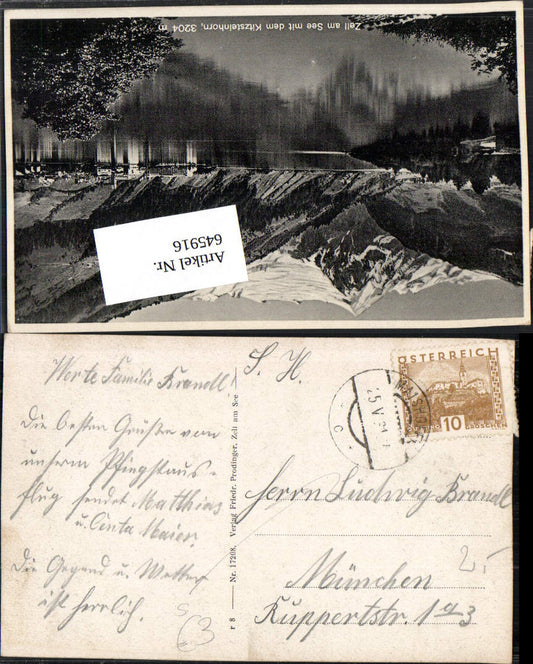 Zell am See mit dem Kitzsteinhorn, 3204 m
Artikel Nr.
645916
Werte Familie Brandl!
Die besten Grüße von
unserm Pfingstaus-
flug sendet Matthias
u. Centa Maier.
Die Gegend u. Wetter
ist herrlich.
r 8 — Nr. 17208. Verlag Friedr. Prodinger, Zell am See
S. H.
ÖSTERREICH
10
GROSCHEN
25.V.
Herrn Ludwig Brandl
München
Ruppertstr. 1a/3
2.-